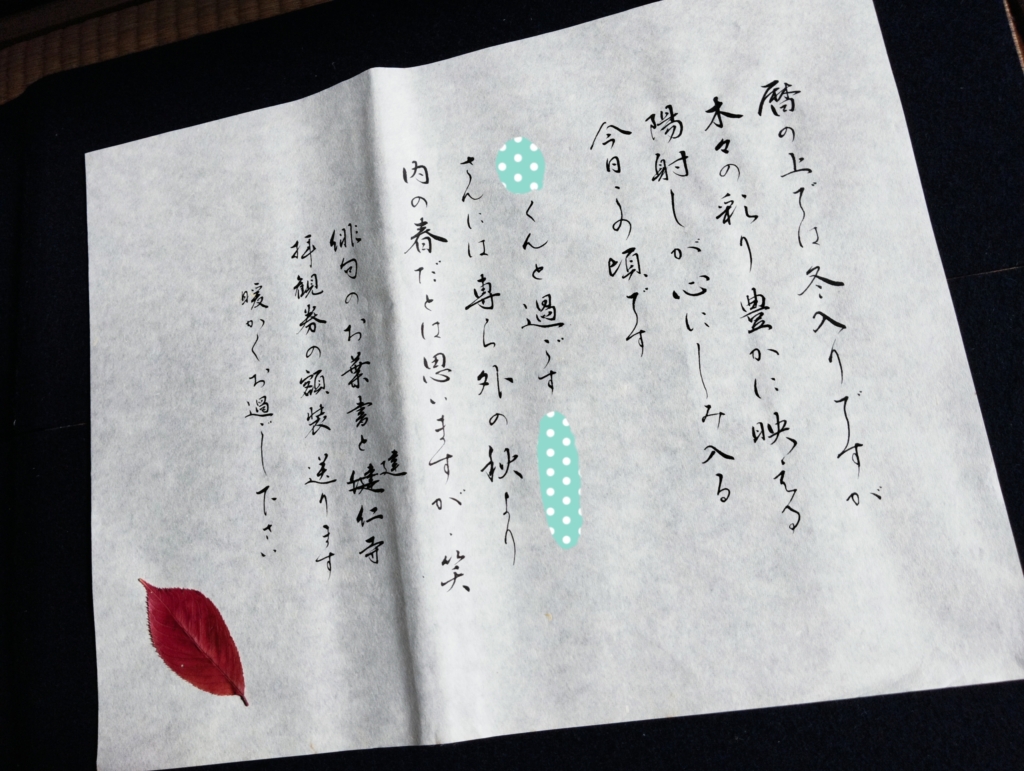 暦の上では冬入りですが
木々の彩り豊かに映える
陽射しが心にしみ入る
今日この頃です
くんと過ごす
さんには専ら外の秋より
内の春だとは思いますが・笑
俳句のお葉書と建仁寺
拝観券の額装 送ります
暖かくお過ごし下さい